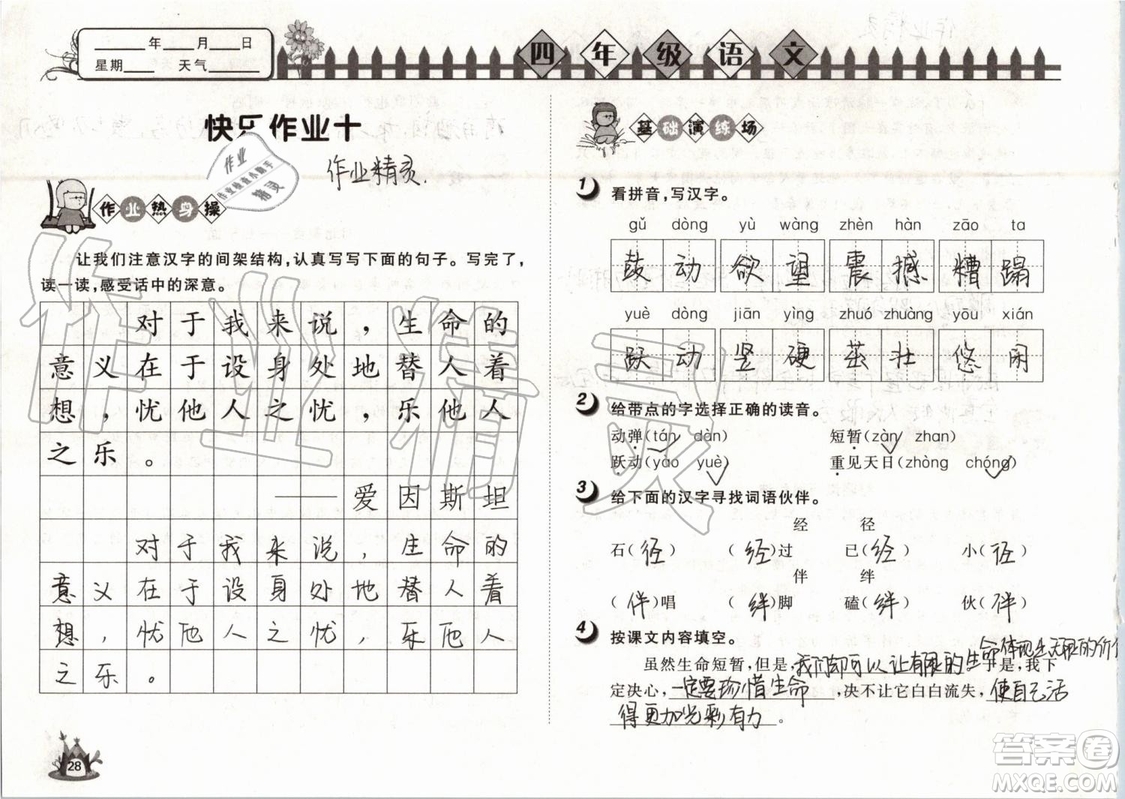 ____年____月____日
星期____ 天气____
四年级语文
快乐作业十
作业精灵
作业热身操
让我们注意汉字的间架结构,认真写写下面的句子。写完了,
读一读,感受话中的深意。
对于我来说,生命的
意义在于设身处地替人着
想,忧他人之忧,乐他人
之乐。
——爱因斯坦
对于我来说,生命的
意义在于设身处地替人着
想,忧他人之忧,乐他人
之乐。
28
基础演练场
1 看拼音,写汉字。
gǔ dòng yù wàng zhèn hàn zāo ta
鼓动 欲望 震撼 糟蹋
yuè dòng jiān yìng zhuó zhuàng yōu xián
跃动 坚硬 茁壮 悠闲
2 给带点的字选择正确的读音。
动弹(tán dàn) 短暂(zàn zhan)
跃动(yào yuè) 重见天日(zhòng chóng)
3 给下面的汉字寻找词语伙伴。
经 径
石(径) (经)过 已(经) 小(径)
伴 绊
(伴)唱 (绊)脚 磕(绊) 伙(伴)
4 按课文内容填空。
虽然生命短暂,但是,我们却可以让有限的生命体现出无限的价值 于是,我下
定决心,一定要珍惜生命,决不让它白白流失,使自己活
得更加光彩有力。
作业精灵
答案圈
MXQE.COM